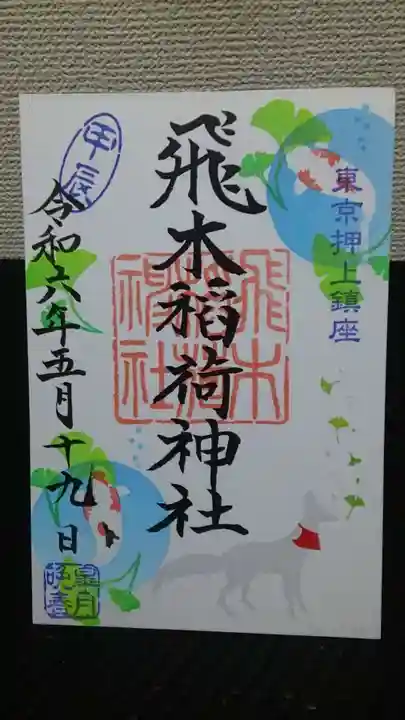 東京押上鎮座
飛木稲荷神社
飛木稲荷神社
甲辰
令和六年五月十九日
皐月